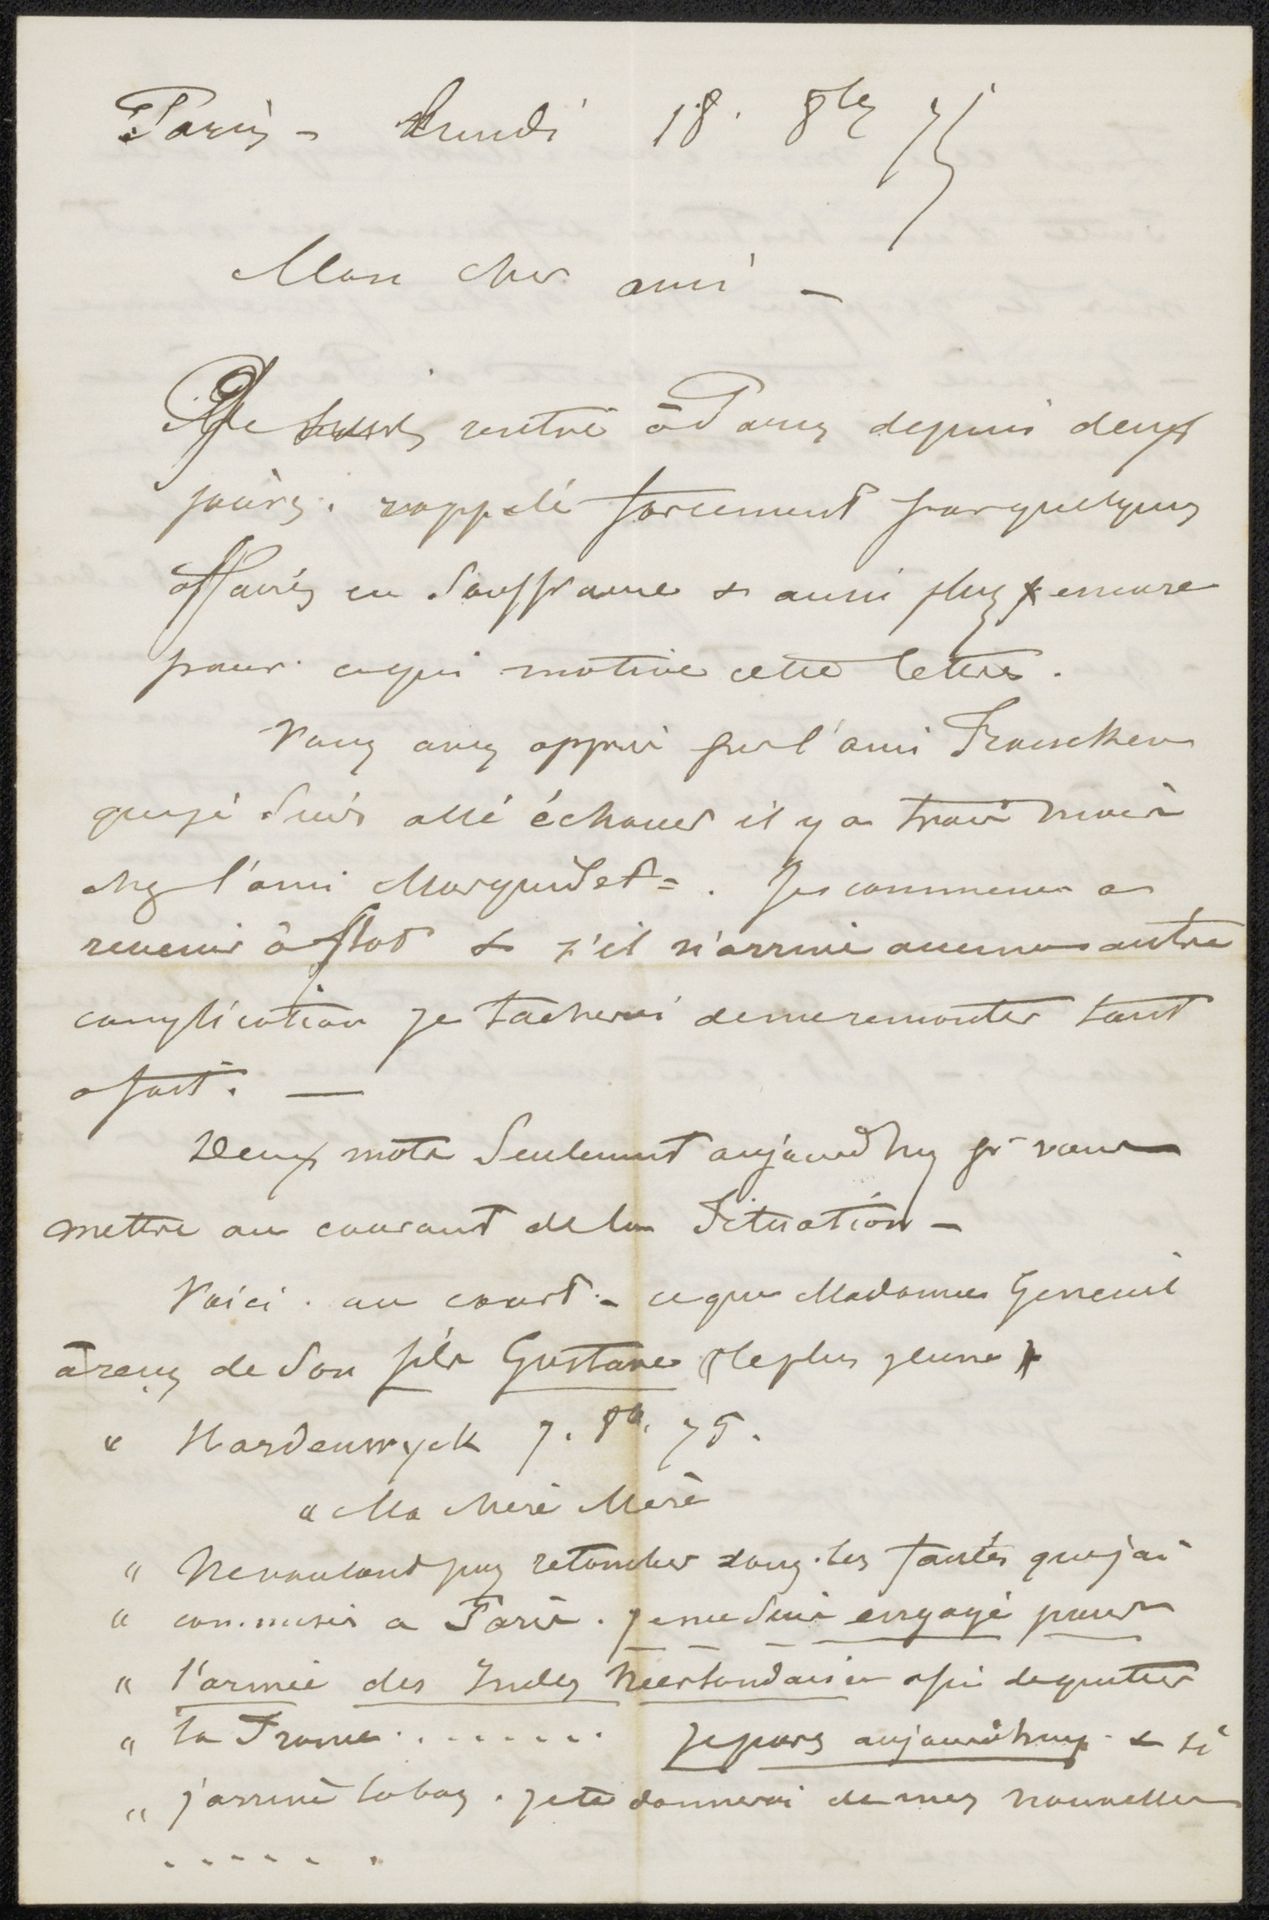 Paris - Lundi 18. 8bre 75
Mon cher ami -
Je suis rentré à Paris depuis deux
jours. rappelé forcement par quelques
affaires en souffrance & aussi plus encore
pour ce qui motive cette lettre.
Vous avez appris par l'ami Franchen
que je suis allé échouer il y a trois mois
chez l'ami Marguidet =. Je commence a
revenir à flot & s'il n'arrive aucune autre
complication je tacherai de me remonter tout
a fait. —
Deux mots seulement aujourd'huy pr vous
mettre au courant de la situation -
Voici. au court - ce que Madame Geneuil
à reçu de son fils Gustave (le plus jeune)
" Harderwyck 7. 8b. 75.
" Ma chere Mère
" Ne voulant pas retomber dans les fautes que j'ai
" commises a Paris. je me suis engagé pour
" l'armée des Indes Néerlandaises afin de quitter
" la France . . . . . . . je pars aujourd'huy. & si
" j'arrive la bas. je te donnerai de mes nouvelles
. . . . . .